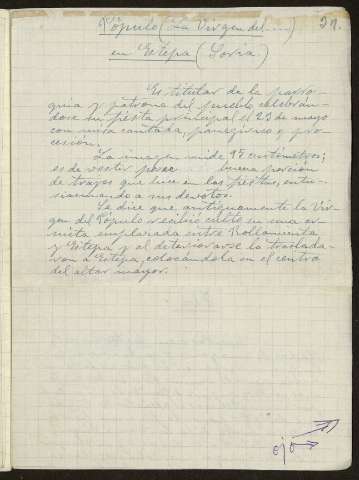 Pópulo (La Virgen del ....) 21.
en Estepa (Soria.)
Es titular de la parro-
quia y patrona del pueblo celebrán-
dose su fiesta principal el 23 de mayo
con misa cantada, panegírico y pro-
cesión.
La imagen mide 95 centímetros;
es de vestir posee buena porción
de trajes que luce en las fiestas, entu-
siasmando a sus devotos.
Se dice que antiguamente la Vir-
gen del Pópulo recibió culto en una er-
mita emplazada entre Rollamienta
y Estepa y al deteriorarse la traslada-
ron a Estepa, colocándola en el centro
del altar mayor.
ojo